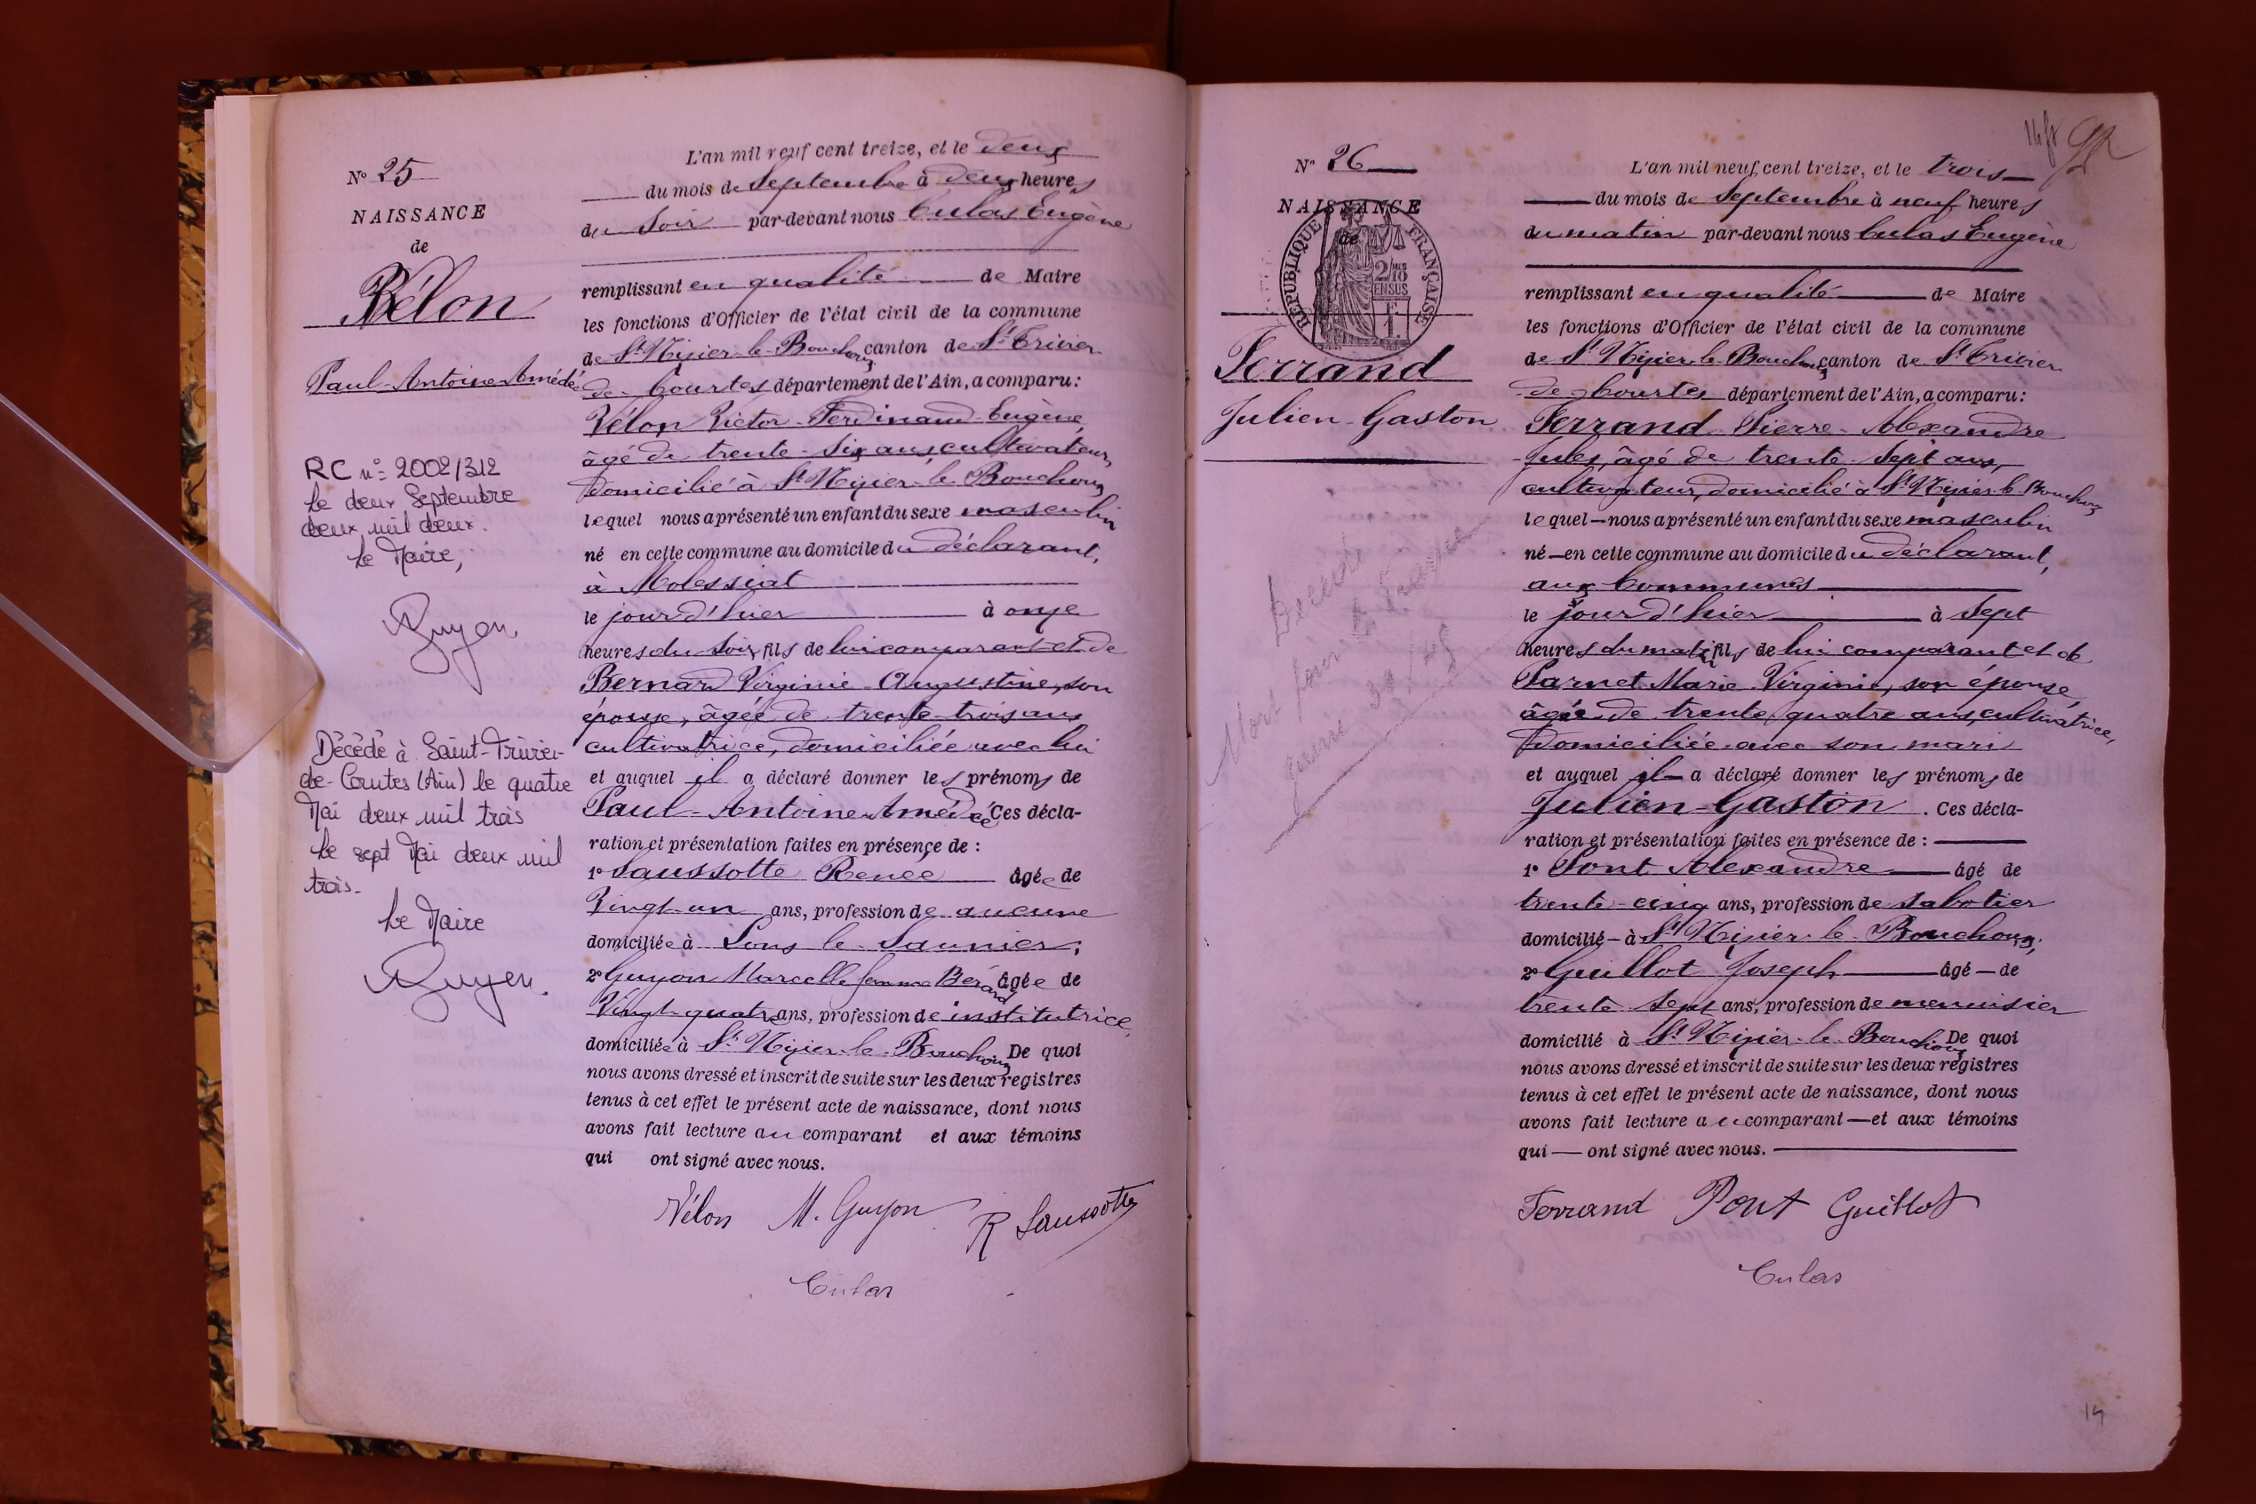 N° 25
NAISSANCE
de
Vélon
Paul-Antoine-Amédée
RC n° 2002/312
Le deux Septembre
deux mil deux.
Le Maire,
Guyen
Décédé à Saint-Trivier-
de-Courtes (Ain) le quatre
Mai deux mil trois
Le sept Mai deux mil
trois.
Le Maire
Guyen.
L'an mil neuf cent treize, et le deux
du mois de Septembre à deux heures
du soir par-devant nous Culas Eugène
remplissant en qualité de Maire
les fonctions d'Officier de l'état civil de la commune
de St Nizier-le-Bouchoux canton de St Trivier
de Courtes département de l'Ain, a comparu :
Vélon Victor-Ferdinand-Eugène,
âgé de trente-six ans, cultivateur,
domicilié à St Nizier-le-Bouchoux
lequel nous a présenté un enfant du sexe masculin
né en cette commune au domicile du déclarant,
à Molessiat
le jour d'hier à onze
heures du soir, fils de lui comparant et de
Bernard Virginie-Augustine, son
épouse, âgée de trente-trois ans
cultivatrice, domiciliée avec lui
et auquel il a déclaré donner les prénoms de
Paul-Antoine-Amédée Ces décla-
ration et présentation faites en présence de :
1° Saussotte Renée âgée de
Vingt-un ans, profession de aucune
domiciliée à Lons-le-Saunier ;
2° Guyon Marcelle femme Bérard âgée de
Vingt-quatre ans, profession de institutrice,
domiciliée à St Nizier-le-Bouchoux De quoi
nous avons dressé et inscrit de suite sur les deux registres
tenus à cet effet le présent acte de naissance, dont nous
avons fait lecture au comparant et aux témoins
qui ont signé avec nous.
Vélon M. Guyon R Saussotte
Culas
N° 26
NAISSANCE
de
RÉPUBLIQUE FRANÇAISE
2/10 EN SUS
1 F
Ferrand
Julien-Gaston
Décédé
Mort pour la France
L'an mil neuf cent treize, et le trois
du mois de Septembre à neuf heures
du matin par-devant nous Culas Eugène
remplissant en qualité de Maire
les fonctions d'Officier de l'état civil de la commune
de St Nizier-le-Bouchoux canton de St Trivier
de Courtes département de l'Ain, a comparu :
Ferrand Pierre-Alexandre
Jules, âgé de trente-sept ans,
cultivateur, domicilié à St Nizier-le-Bouchoux
lequel nous a présenté un enfant du sexe masculin
né en cette commune au domicile du déclarant,
aux Communes
le jour d'hier à sept
heures du matin, fils de lui comparant et de
Parnet Marie-Virginie, son épouse
âgée de trente-quatre ans, cultivatrice,
domiciliée avec son mari
et auquel il a déclaré donner les prénoms de
Julien-Gaston. Ces décla-
ration et présentation faites en présence de :
1° Pont Alexandre âgé de
trente-cinq ans, profession de sabotier
domicilié à St Nizier-le-Bouchoux ;
2° Guillot Joseph âgé de
trente-sept ans, profession de menuisier
domicilié à St Nizier-le-Bouchoux De quoi
nous avons dressé et inscrit de suite sur les deux registres
tenus à cet effet le présent acte de naissance, dont nous
avons fait lecture au comparant et aux témoins
qui ont signé avec nous.
Ferrand Pont Guillot
Culas
14